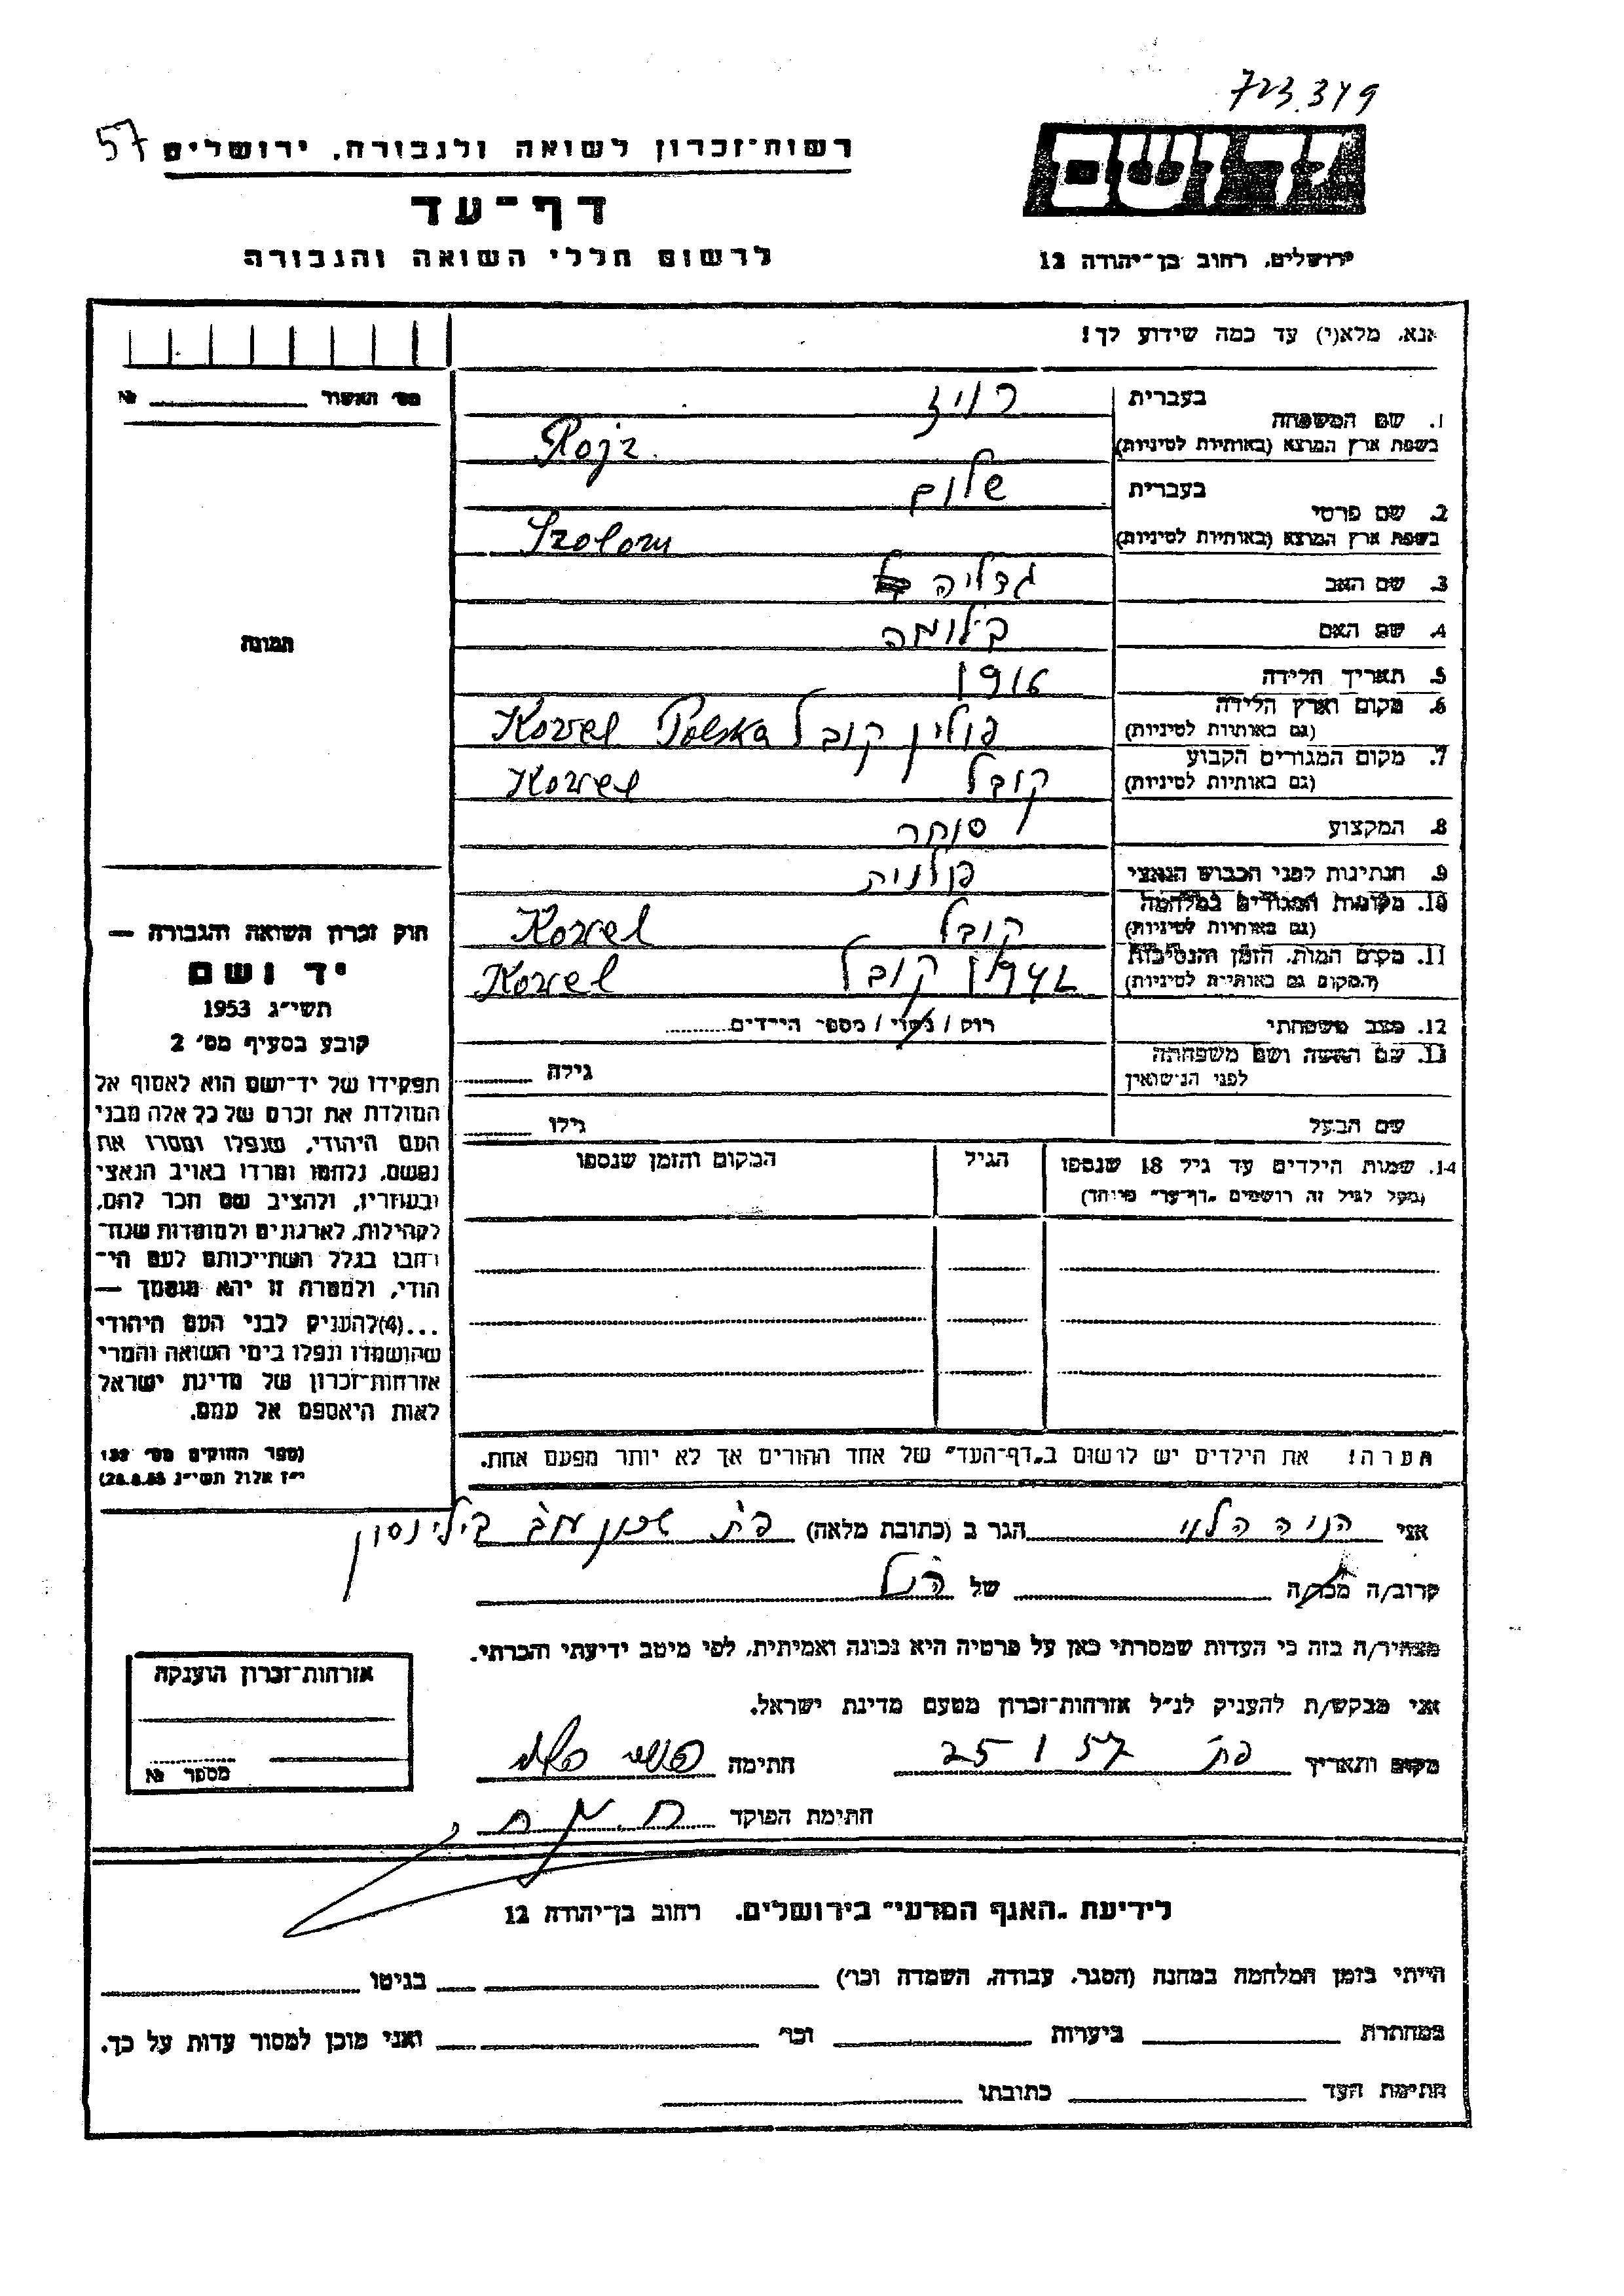 723.349
57
רשות־זכרון לשואה ולגבורה, ירושלים
ידושם
דף־עד
לרשום חללי השואה והגבורה
ירושלים, רחוב בן־יהודה 12
אנא, מלא(י) עד כמה שידוע לך!
מס' האשור № 
בעברית רויז
1. שם המשפחה
בשפת ארץ המוצא (באותיות לטיניות) Rojz
בעברית שלום
2. שם פרטי
בשפת ארץ המוצא (באותיות לטיניות) Szolom
3. שם האב גדליה
4. שם האם בלומה
5. תאריך הלידה 1916
6. מקום וארץ הלידה
(גם באותיות לטיניות) פולין קובל Kowel Polska
7. מקום המגורים הקבוע
(גם באותיות לטיניות) קובל Kowel
8. המקצוע סוחר
9. הנתינות לפני הכבוש הנאצי פולנית
10. מקומות המגורים במלחמה
(גם באותיות לטיניות) קובל Kowel
11. מקום המות, הזמן והנסיבות
(המקום גם באותיות לטיניות) 1942 קובל Kowel
12. מצב משפחתי רוק / נשוי / מספר הילדים
13. שם האשה ושם משפחתה
לפני הנישואין גילה
שם הבעל גילו
14. שמות הילדים עד גיל 18 שנספו הגיל המקום והזמן שנספו
(מעל לגיל זה רושמים "דף־עד" מיוחד)
הערה! את הילדים יש לרשום ב"דף־העד" של אחד ההורים אך לא יותר מפעם אחת.
תמונה
חוק זכרון השואה והגבורה —
יד ושם
תשי"ג 1953
קובע בסעיף מס' 2
תפקידו של יד־ושם הוא לאסוף אל
המולדת את זכרם של כל אלה מבני
העם היהודי, שנפלו ומסרו את
נפשם, נלחמו ומרדו באויב הנאצי
ובעוזריו, ולהציב שם וזכר להם,
לקהילות, לארגונים ולמוסדות שנח־
רבו בגלל השתייכותם לעם הי־
הודי, ולמטרה זו יהא מוסמך —
...(4)להעניק לבני העם היהודי
שהושמדו ונפלו בימי השואה והמרי
אזרחות־זכרון של מדינת ישראל
לאות היאספם אל עמם.
(ספר החוקים מס' 132
י"ז אלול תשי"ג 28.8.53)
אני הניה הלוי הגר ב (כתובת מלאה) פ"ת שכון בילינסון
קרוב/ה מכר/ה של הנ"ל
מצהיר/ה בזה כי העדות שמסרתי כאן על פרטיה היא נכונה ואמיתית, לפי מיטב ידיעתי והכרתי.
אני מבקש/ת להעניק לנ"ל אזרחות־זכרון מטעם מדינת ישראל.
מקום ותאריך פת 25 1 57 חתימה
חתימת הפוקד
אזרחות־זכרון הוענקה
מספר №
לידיעת "האגף המדעי" בירושלים. רחוב בן־יהודה 12
הייתי בזמן המלחמה במחנה (הסגר, עבודה, השמדה וכו') בגיטו
במחתרת ביערות וכו' ואני מוכן למסור עדות על כך.
חתימת העד כתובתו